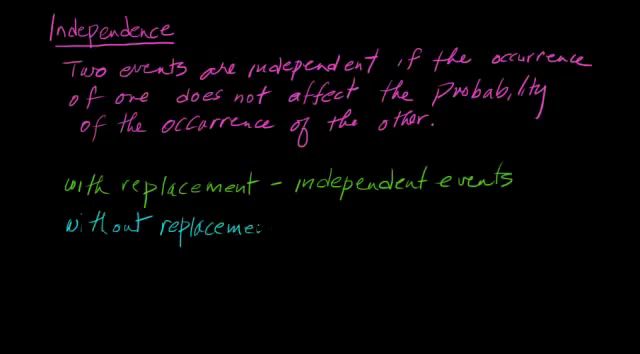 Independence
Two events are independent if the occurrence
of one does not affect the Probability
of the occurrence of the other.
with replacement - independent events
without replaceme